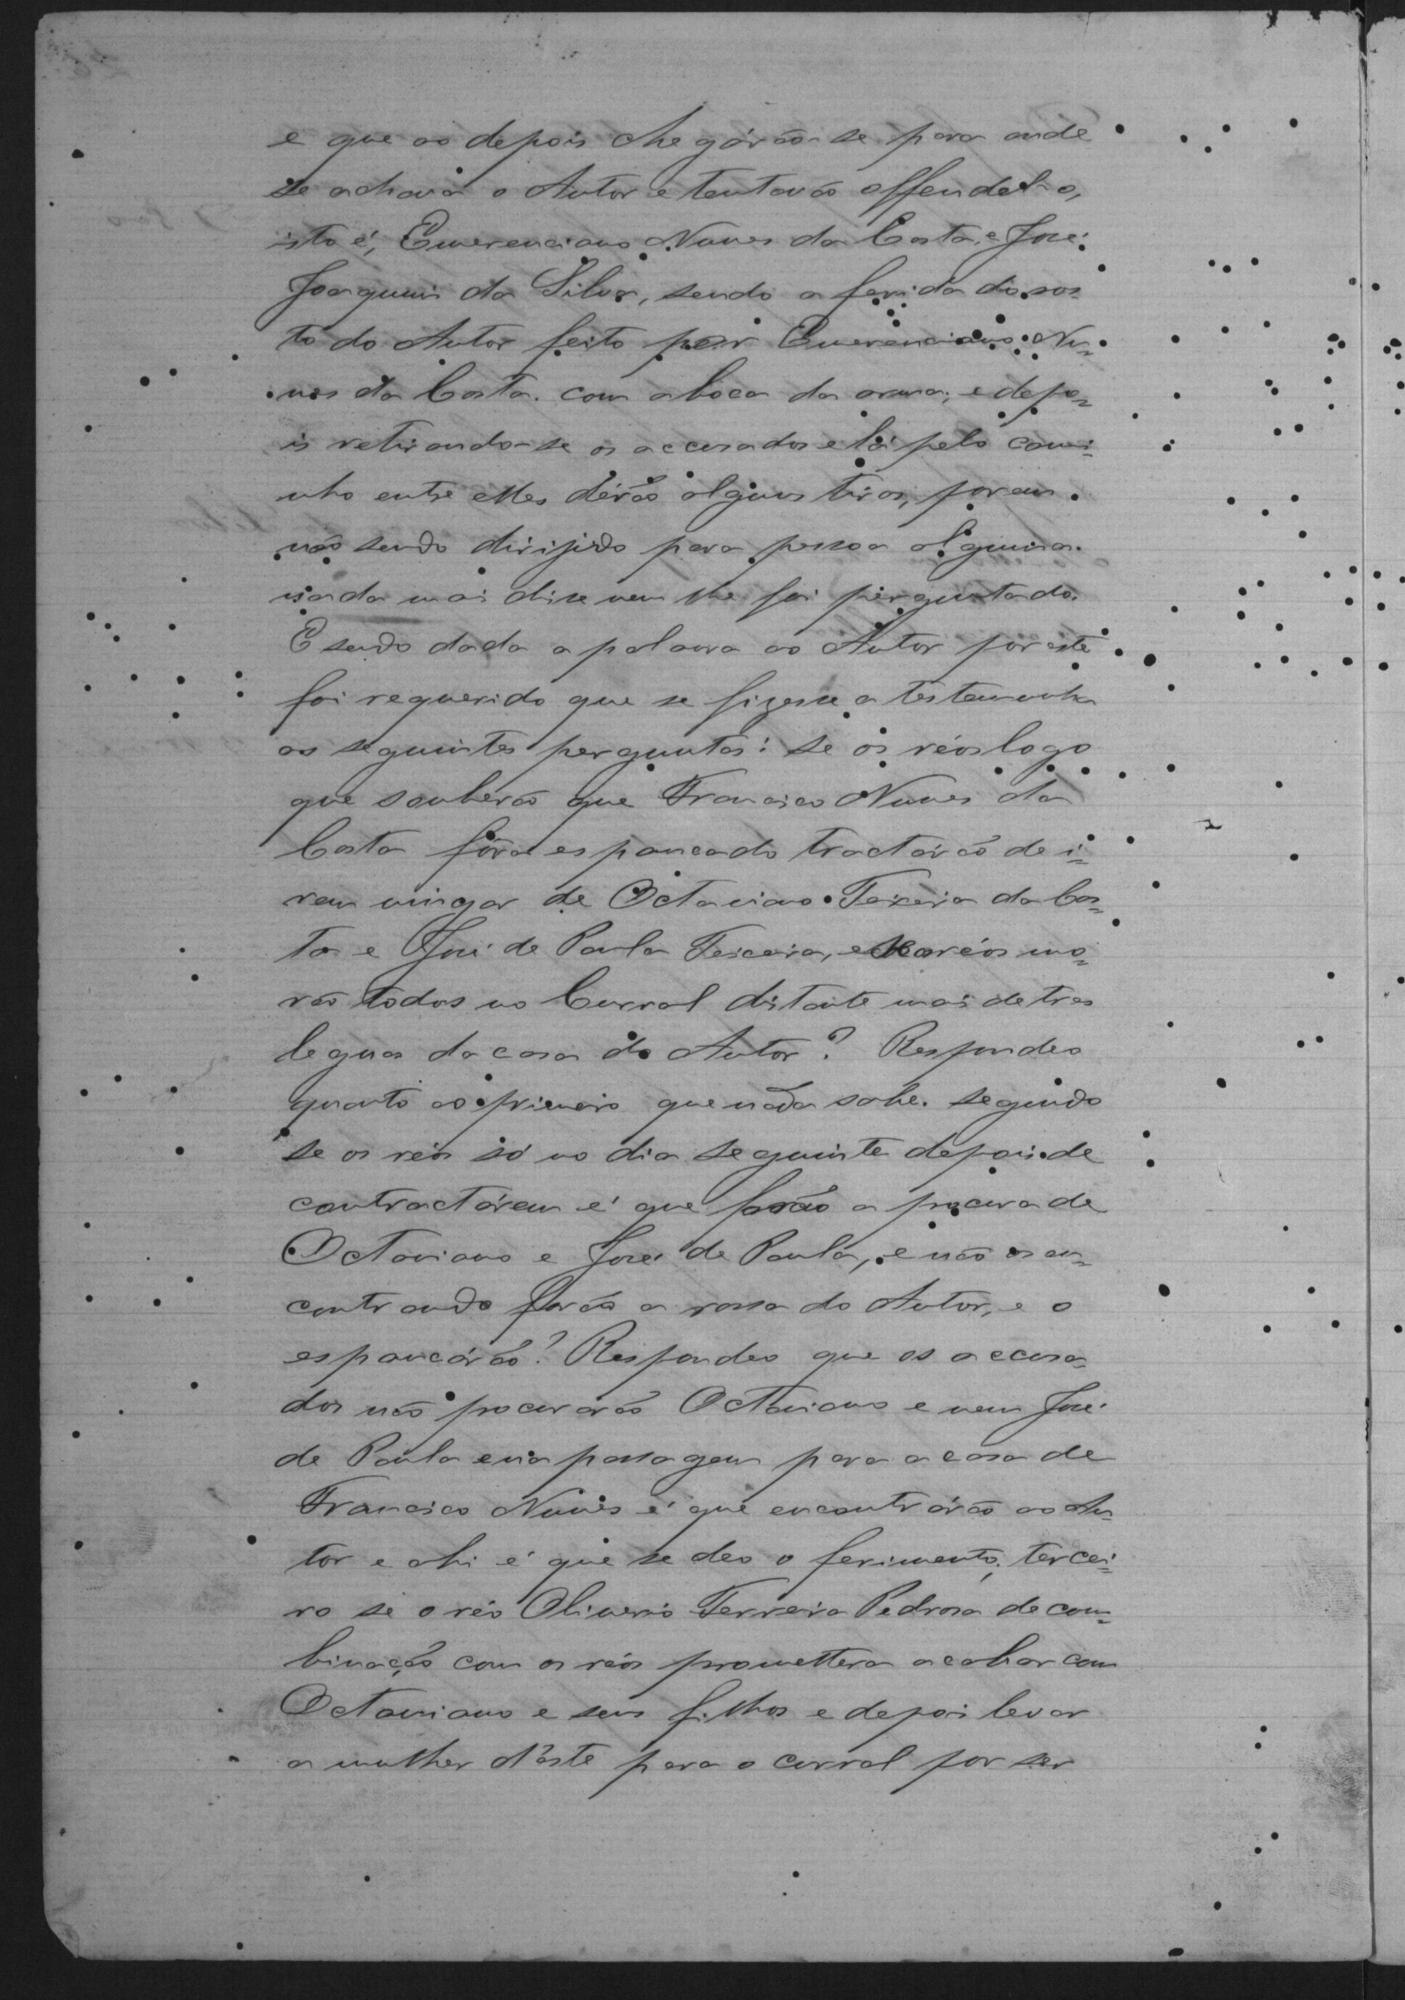 e que ao depois chegárão-se para onde
se achava o Autor e tentavão offendel-o,
isto é, Emerenciano Nunes da Costa, e José
Joaquim da Silva, sendo a ferida do ros-
to do Autor feito por Emerenciano Nu-
nes da Costa. com a boca da arma; e depo-
is retirando-se os accusados e lá pelo cami-
nho entre elles dérão alguns tiros, porem
não sendo dirijido para pessoa alguma.
nada mais disse nem lhe foi perguntado.
E sendo dada a palavra ao Autor por este
foi requerido que se fizesse a testemunha
as seguintes perguntas: se os réos logo
que souberão que Francisco Nunes da
Costa fôra espancado tractárão de i-
rem vingar de Octaviano Teixeira da Cos-
ta e José de Paula Teixeira, e se os réos mo-
rão todos no Curral distante mais de tres
leguas da casa do Autor? Respondeo
quanto ao primeiro que nada sabe. segundo
se os réos só no dia seguinte depois de
contractárem é que forão a procura de
Octaviano e José de Paula, e não os en-
contrando forão a rossa do Autor, e o
espancárão? Respondeo que os accusa-
dos não procurárão Octaviano e nem José
de Paula e na passagem para a casa de
Francisco Nunes é que encontrárão ao Au-
tor e ahi é que se deo o ferimento, tercei-
ro se o réo Oliverio Ferreira Pedrosa de com-
binação com os réos promettera acabar com
Octaviano e seus filhos e depois levar
a mulher d'este para o curral por ser